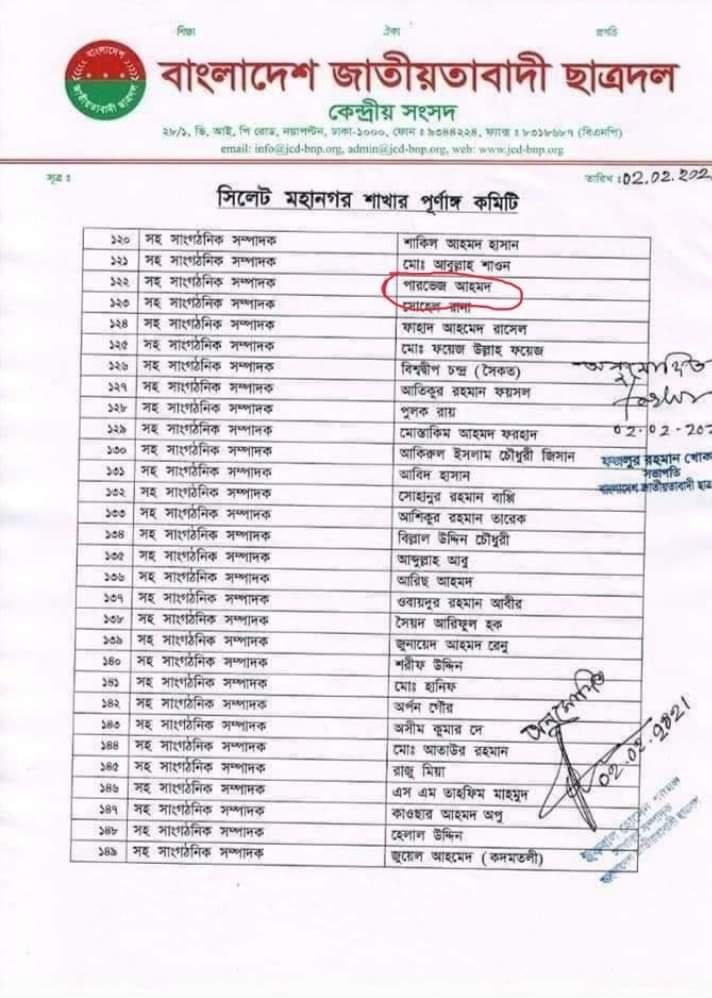 শিক্ষা ঐক্য প্রগতি
বাংলাদেশ জাতীয়তাবাদী ছাত্রদল
কেন্দ্রীয় সংসদ
২৮/১, ভি, আই, পি রোড, নয়াপল্টন, ঢাকা-১০০০, ফোন : ৯৩৪৪২২৪, ফ্যাক্স : ৮৩১৮৬৮৭ (বিএনপি)
email: info@jcd-bnp.org, admin@jcd-bnp.org, web: www.jcd-bnp.org
সূত্র :
তারিখ : 02.02.202
সিলেট মহানগর শাখার পূর্ণাঙ্গ কমিটি
১২০ সহ সাংগঠনিক সম্পাদক শাকিল আহমদ হাসান
১২১ সহ সাংগঠনিক সম্পাদক মোঃ আবুল্লাহ শাওন
১২২ সহ সাংগঠনিক সম্পাদক পারভেজ আহমদ
১২৩ সহ সাংগঠনিক সম্পাদক সোহেল রানা
১২৪ সহ সাংগঠনিক সম্পাদক ফাহাদ আহমেদ রাসেল
১২৫ সহ সাংগঠনিক সম্পাদক মোঃ ফয়েজ উল্লাহ ফয়েজ
১২৬ সহ সাংগঠনিক সম্পাদক বিশ্বদ্বীপ চন্দ্র (সৈকত)
১২৭ সহ সাংগঠনিক সম্পাদক আতিকুর রহমান ফয়সল
১২৮ সহ সাংগঠনিক সম্পাদক পুলক রায়
১২৯ সহ সাংগঠনিক সম্পাদক মোস্তাকিম আহমদ ফরহাদ
১৩০ সহ সাংগঠনিক সম্পাদক আকিরুল ইসলাম চৌধুরী জিসান
১৩১ সহ সাংগঠনিক সম্পাদক আবিদ হাসান
১৩২ সহ সাংগঠনিক সম্পাদক সোহানুর রহমান বাপ্পি
১৩৩ সহ সাংগঠনিক সম্পাদক আশিকুর রহমান তারেক
১৩৪ সহ সাংগঠনিক সম্পাদক বিল্লাল উদ্দিন চৌধুরী
১৩৫ সহ সাংগঠনিক সম্পাদক আব্দুল্লাহ আবু
১৩৬ সহ সাংগঠনিক সম্পাদক আরিছ আহমদ
১৩৭ সহ সাংগঠনিক সম্পাদক ওবায়দুর রহমান আবীর
১৩৮ সহ সাংগঠনিক সম্পাদক সৈয়দ আরিফুল হক
১৩৯ সহ সাংগঠনিক সম্পাদক জুনায়েদ আহমদ রেনু
১৪০ সহ সাংগঠনিক সম্পাদক শরীফ উদ্দিন
১৪১ সহ সাংগঠনিক সম্পাদক মোঃ হানিফ
১৪২ সহ সাংগঠনিক সম্পাদক অর্পন গৌর
১৪৩ সহ সাংগঠনিক সম্পাদক অসীম কুমার দে
১৪৪ সহ সাংগঠনিক সম্পাদক মোঃ আতাউর রহমান
১৪৫ সহ সাংগঠনিক সম্পাদক রাজু মিয়া
১৪৬ সহ সাংগঠনিক সম্পাদক এস এম তাহফিম মাহমুদ
১৪৭ সহ সাংগঠনিক সম্পাদক কাওছার আহমদ অপু
১৪৮ সহ সাংগঠনিক সম্পাদক হেলাল উদ্দিন
১৪৯ সহ সাংগঠনিক সম্পাদক জুয়েল আহমেদ (কদমতলী)
অনুমোদিত
02-02-202
ফজলুর রহমান খোকন
সভাপতি
বাংলাদেশ জাতীয়তাবাদী ছাত্র
অনুমোদিত
02.02.2021